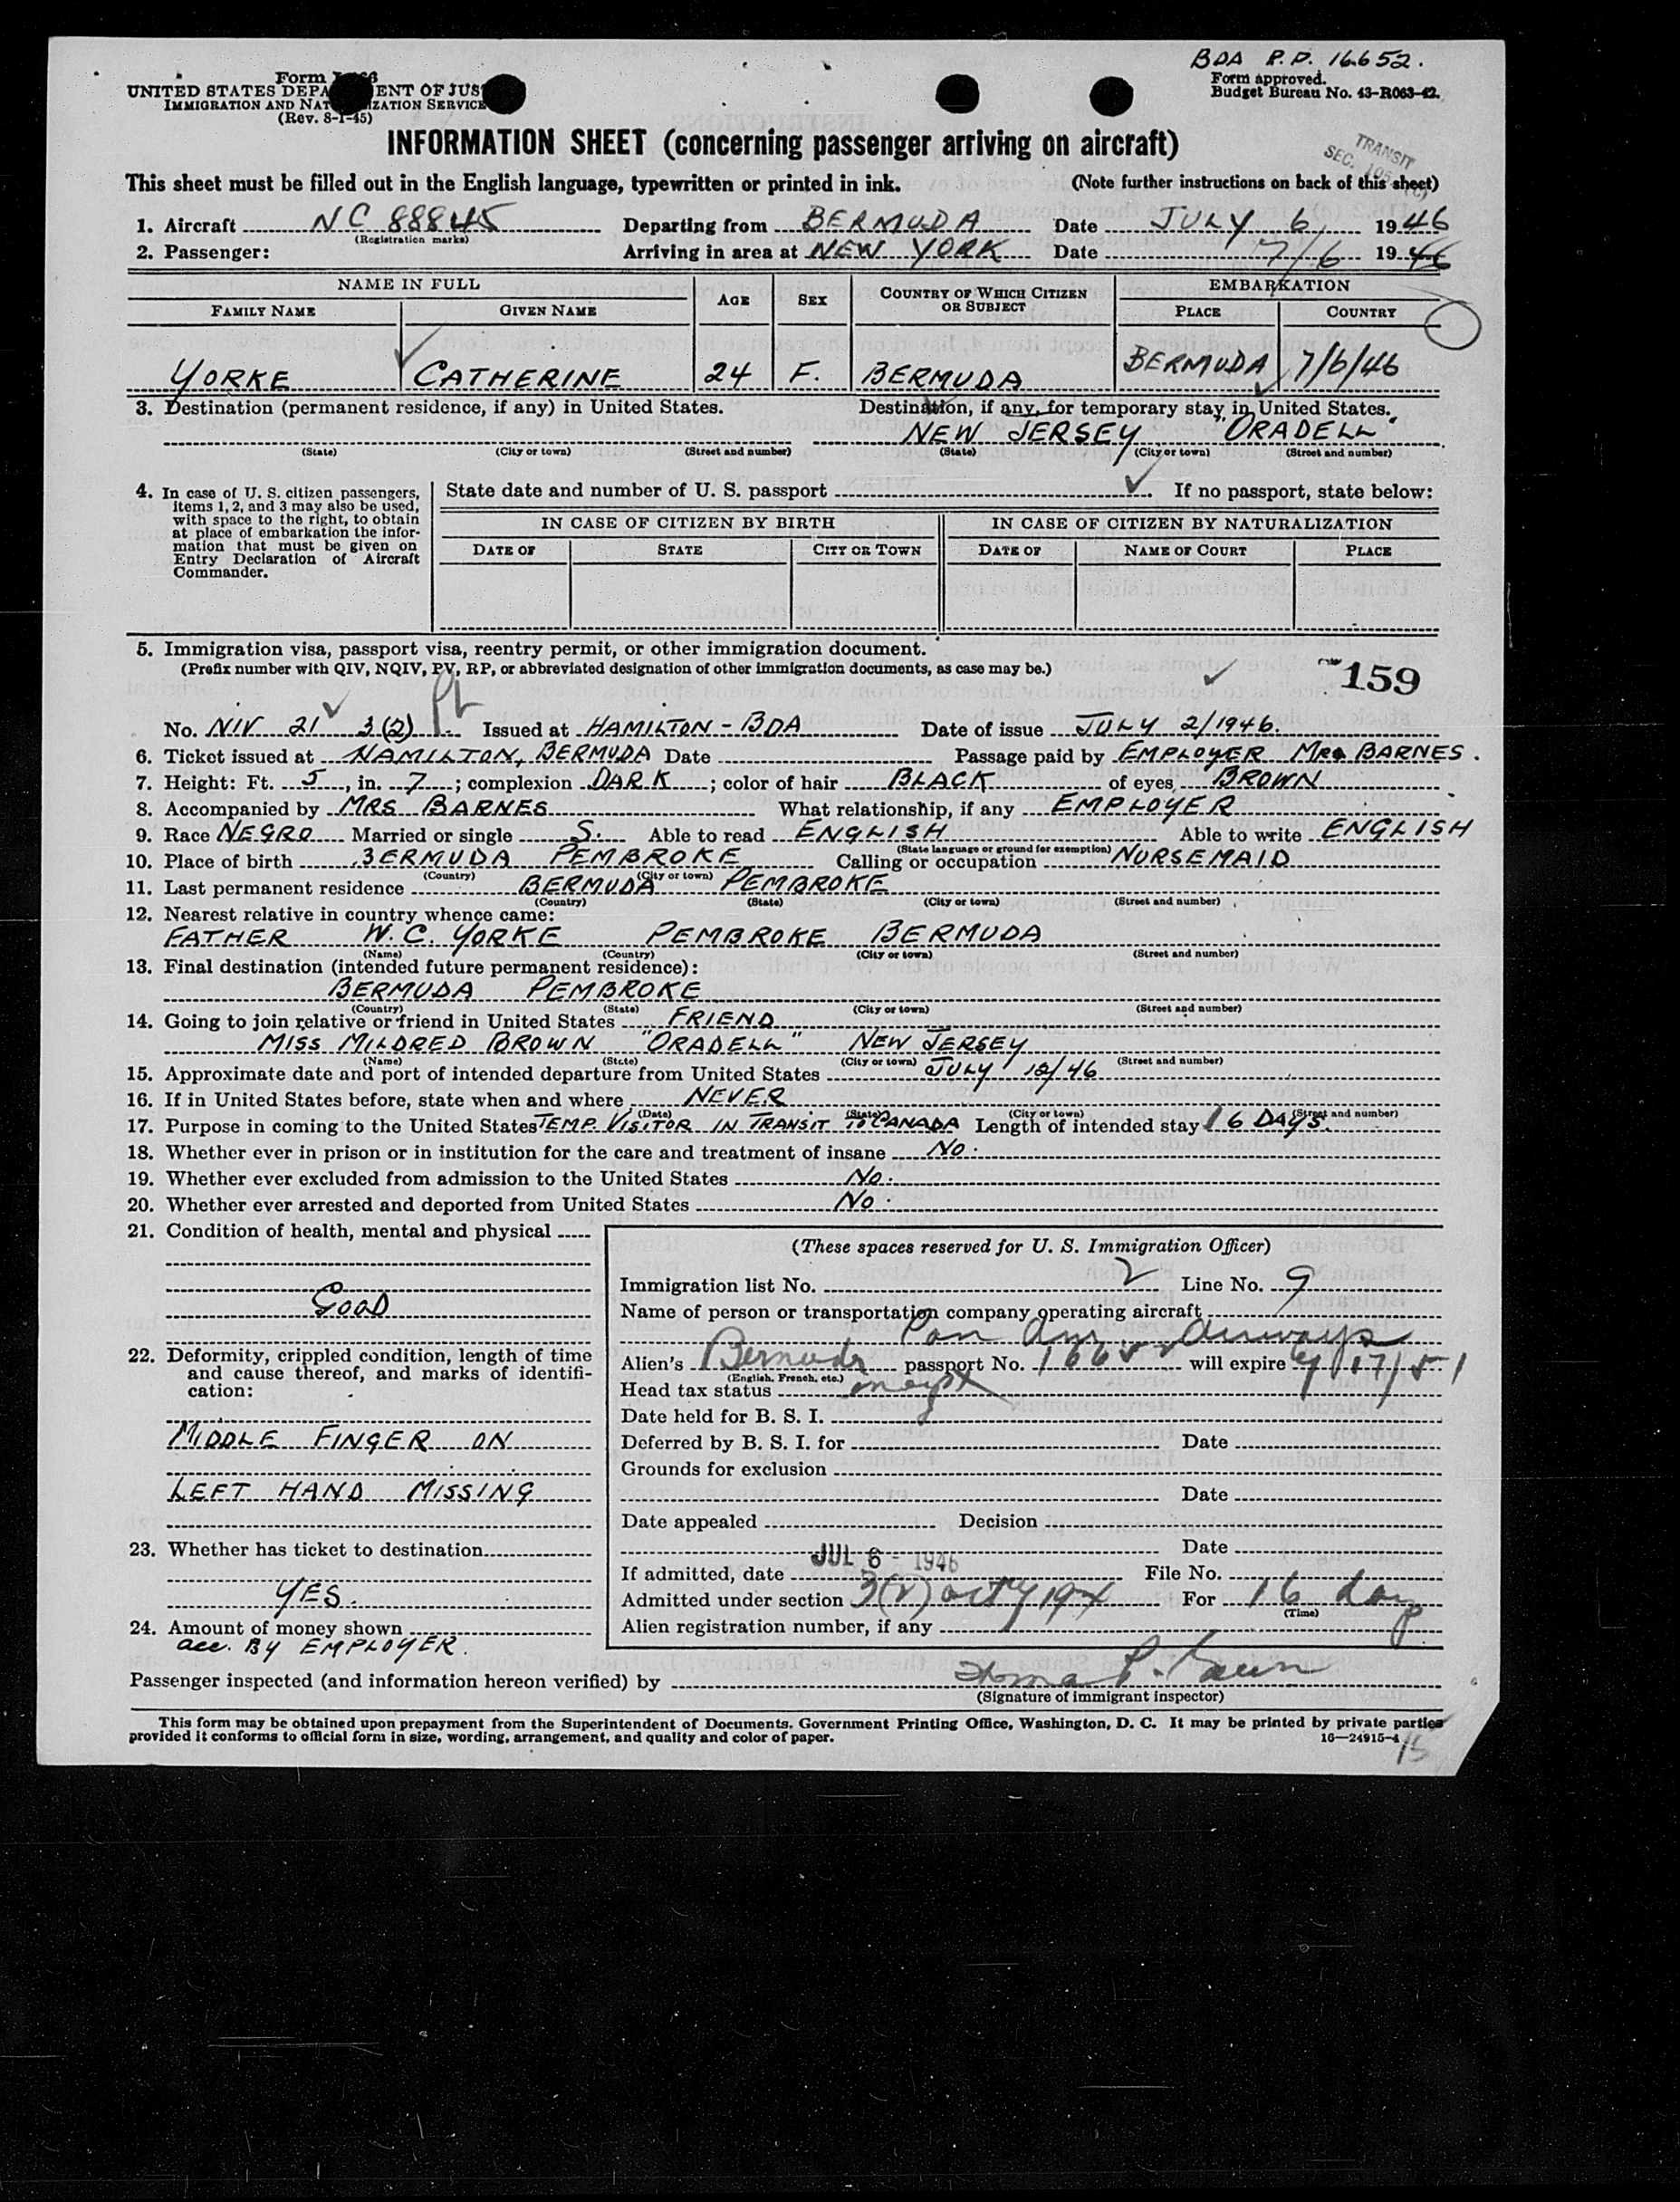 BDA P.P. 16652.
Form
UNITED STATES DEPA ENT OF JUS
IMMIGRATION AND NAT IZATION SERVICE
(Rev. 8-1-45)
Form approved.
Budget Bureau No. 43-R063-42.
INFORMATION SHEET (concerning passenger arriving on aircraft)
TRANSIT
SEC.
This sheet must be filled out in the English language, typewritten or printed in ink. (Note further instructions on back of this sheet)
1. Aircraft NC 88845 Departing from BERMUDA Date JULY 6 1946
(Registration marks)
2. Passenger: Arriving in area at NEW YORK Date 7/6 1946
NAME IN FULL AGE SEX COUNTRY OF WHICH CITIZEN OR SUBJECT EMBARKATION
FAMILY NAME GIVEN NAME PLACE COUNTRY
YORKE CATHERINE 24 F. BERMUDA BERMUDA 7/6/46
3. Destination (permanent residence, if any) in United States. Destination, if any, for temporary stay in United States.
NEW JERSEY "ORADELL"
(State) (City or town) (Street and number) (State) (City or town) (Street and number)
4. In case of U. S. citizen passengers, items 1, 2, and 3 may also be used, with space to the right, to obtain at place of embarkation the information that must be given on Entry Declaration of Aircraft Commander.
State date and number of U. S. passport . If no passport, state below:
IN CASE OF CITIZEN BY BIRTH IN CASE OF CITIZEN BY NATURALIZATION
DATE OF STATE CITY OR TOWN DATE OF NAME OF COURT PLACE
5. Immigration visa, passport visa, reentry permit, or other immigration document.
(Prefix number with QIV, NQIV, PV, RP, or abbreviated designation of other immigration documents, as case may be.)
159
No. NIV 21 3(2) Issued at HAMILTON - BDA Date of issue JULY 2/1946.
6. Ticket issued at HAMILTON, BERMUDA Date Passage paid by EMPLOYER MRS BARNES.
7. Height: Ft. 5, in. 7; complexion DARK; color of hair BLACK of eyes BROWN
8. Accompanied by MRS BARNES What relationship, if any EMPLOYER
9. Race NEGRO Married or single S. Able to read ENGLISH Able to write ENGLISH
(State language or ground for exemption)
10. Place of birth BERMUDA PEMBROKE Calling or occupation NURSEMAID
(Country) (City or town)
11. Last permanent residence BERMUDA PEMBROKE
(Country) (State) (City or town) (Street and number)
12. Nearest relative in country whence came:
FATHER W.C. YORKE PEMBROKE BERMUDA
(Name) (Country) (City or town) (Street and number)
13. Final destination (intended future permanent residence):
BERMUDA PEMBROKE
(Country) (State) (City or town) (Street and number)
14. Going to join relative or friend in United States FRIEND
MISS MILDRED BROWN "ORADELL" NEW JERSEY
(Name) (State) (City or town) (Street and number)
15. Approximate date and port of intended departure from United States JULY /46
16. If in United States before, state when and where NEVER
(Date) (State) (City or town) (Street and number)
17. Purpose in coming to the United States TEMP. VISITOR IN TRANSIT TO CANADA Length of intended stay 16 DAYS.
18. Whether ever in prison or in institution for the care and treatment of insane No.
19. Whether ever excluded from admission to the United States No.
20. Whether ever arrested and deported from United States No.
21. Condition of health, mental and physical
GOOD
22. Deformity, crippled condition, length of time and cause thereof, and marks of identification:
MIDDLE FINGER ON
LEFT HAND MISSING
23. Whether has ticket to destination
YES.
24. Amount of money shown
acc. BY EMPLOYER.
(These spaces reserved for U. S. Immigration Officer)
Immigration list No. 2 Line No. 9
Name of person or transportation company operating aircraft
Pan Am. Airways
Alien's Bermuda passport No. 16652 will expire /17/51
(English, French, etc.)
Head tax status
Date held for B. S. I.
Deferred by B. S. I. for Date
Grounds for exclusion
Date
Date appealed Decision
Date
If admitted, date JUL 6 - 1946 File No.
Admitted under section 3(2) act of 1924 For 16 days
(Time)
Alien registration number, if any
Passenger inspected (and information hereon verified) by
(Signature of immigrant inspector)
This form may be obtained upon prepayment from the Superintendent of Documents. Government Printing Office, Washington, D. C. It may be printed by private parties
provided it conforms to official form in size, wording, arrangement, and quality and color of paper. 16—24915-4
15